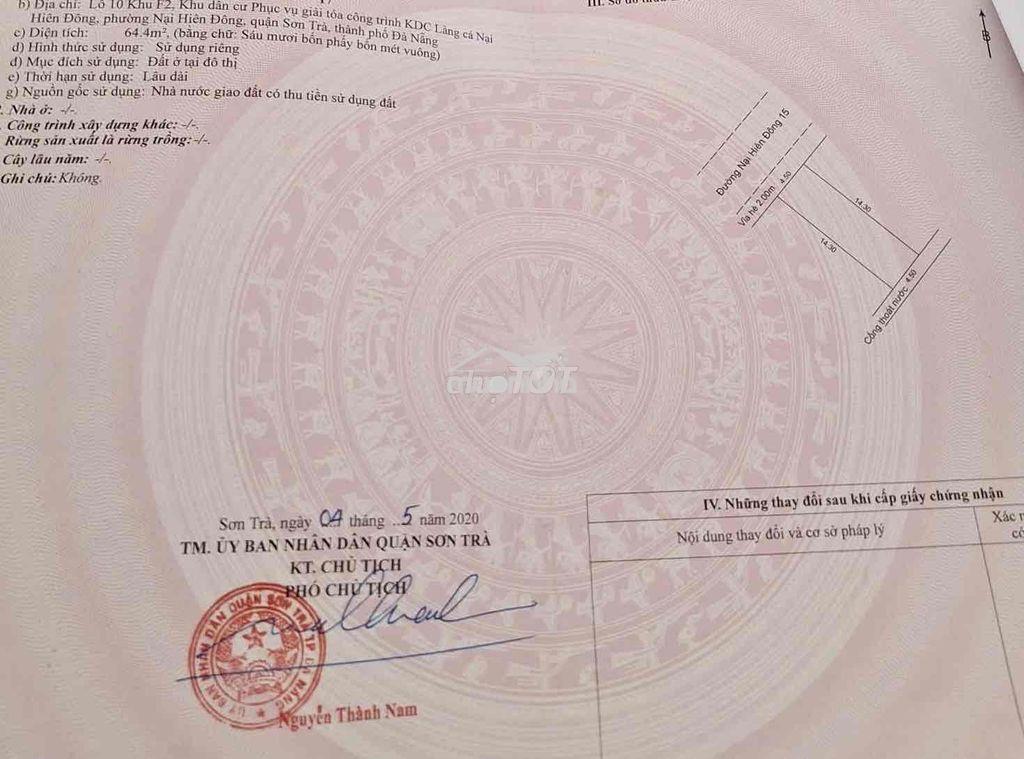 b) Địa chỉ: Lô 10 Khu F2, Khu dân cư Phục vụ giải tỏa công trình KDC Làng cá Nại
Hiên Đông, phường Nại Hiên Đông, quận Sơn Trà, thành phố Đà Nẵng
c) Diện tích: 64.4m², (bằng chữ: Sáu mươi bốn phẩy bốn mét vuông)
d) Hình thức sử dụng: Sử dụng riêng
đ) Mục đích sử dụng: Đất ở tại đô thị
e) Thời hạn sử dụng: Lâu dài
g) Nguồn gốc sử dụng: Nhà nước giao đất có thu tiền sử dụng đất
. Nhà ở: -/-.
. Công trình xây dựng khác: -/-.
Rừng sản xuất là rừng trồng: -/-.
Cây lâu năm: -/-.
Ghi chú: Không.
III. Sơ đồ thửa
B
Đường Nại Hiên Đông 15
Vỉa hè 2.00m
4.50
14.30
14.30
4.50
Cống thoát nước
chợTỐT
Sơn Trà, ngày 04 tháng 5 năm 2020
TM. ỦY BAN NHÂN DÂN QUẬN SƠN TRÀ
KT. CHỦ TỊCH
PHÓ CHỦ TỊCH
ỦY BAN NHÂN DÂN QUẬN SƠN TRÀ TP ĐÀ NẴNG
Nguyễn Thành Nam
IV. Những thay đổi sau khi cấp giấy chứng nhận
Nội dung thay đổi và cơ sở pháp lý
Xác n